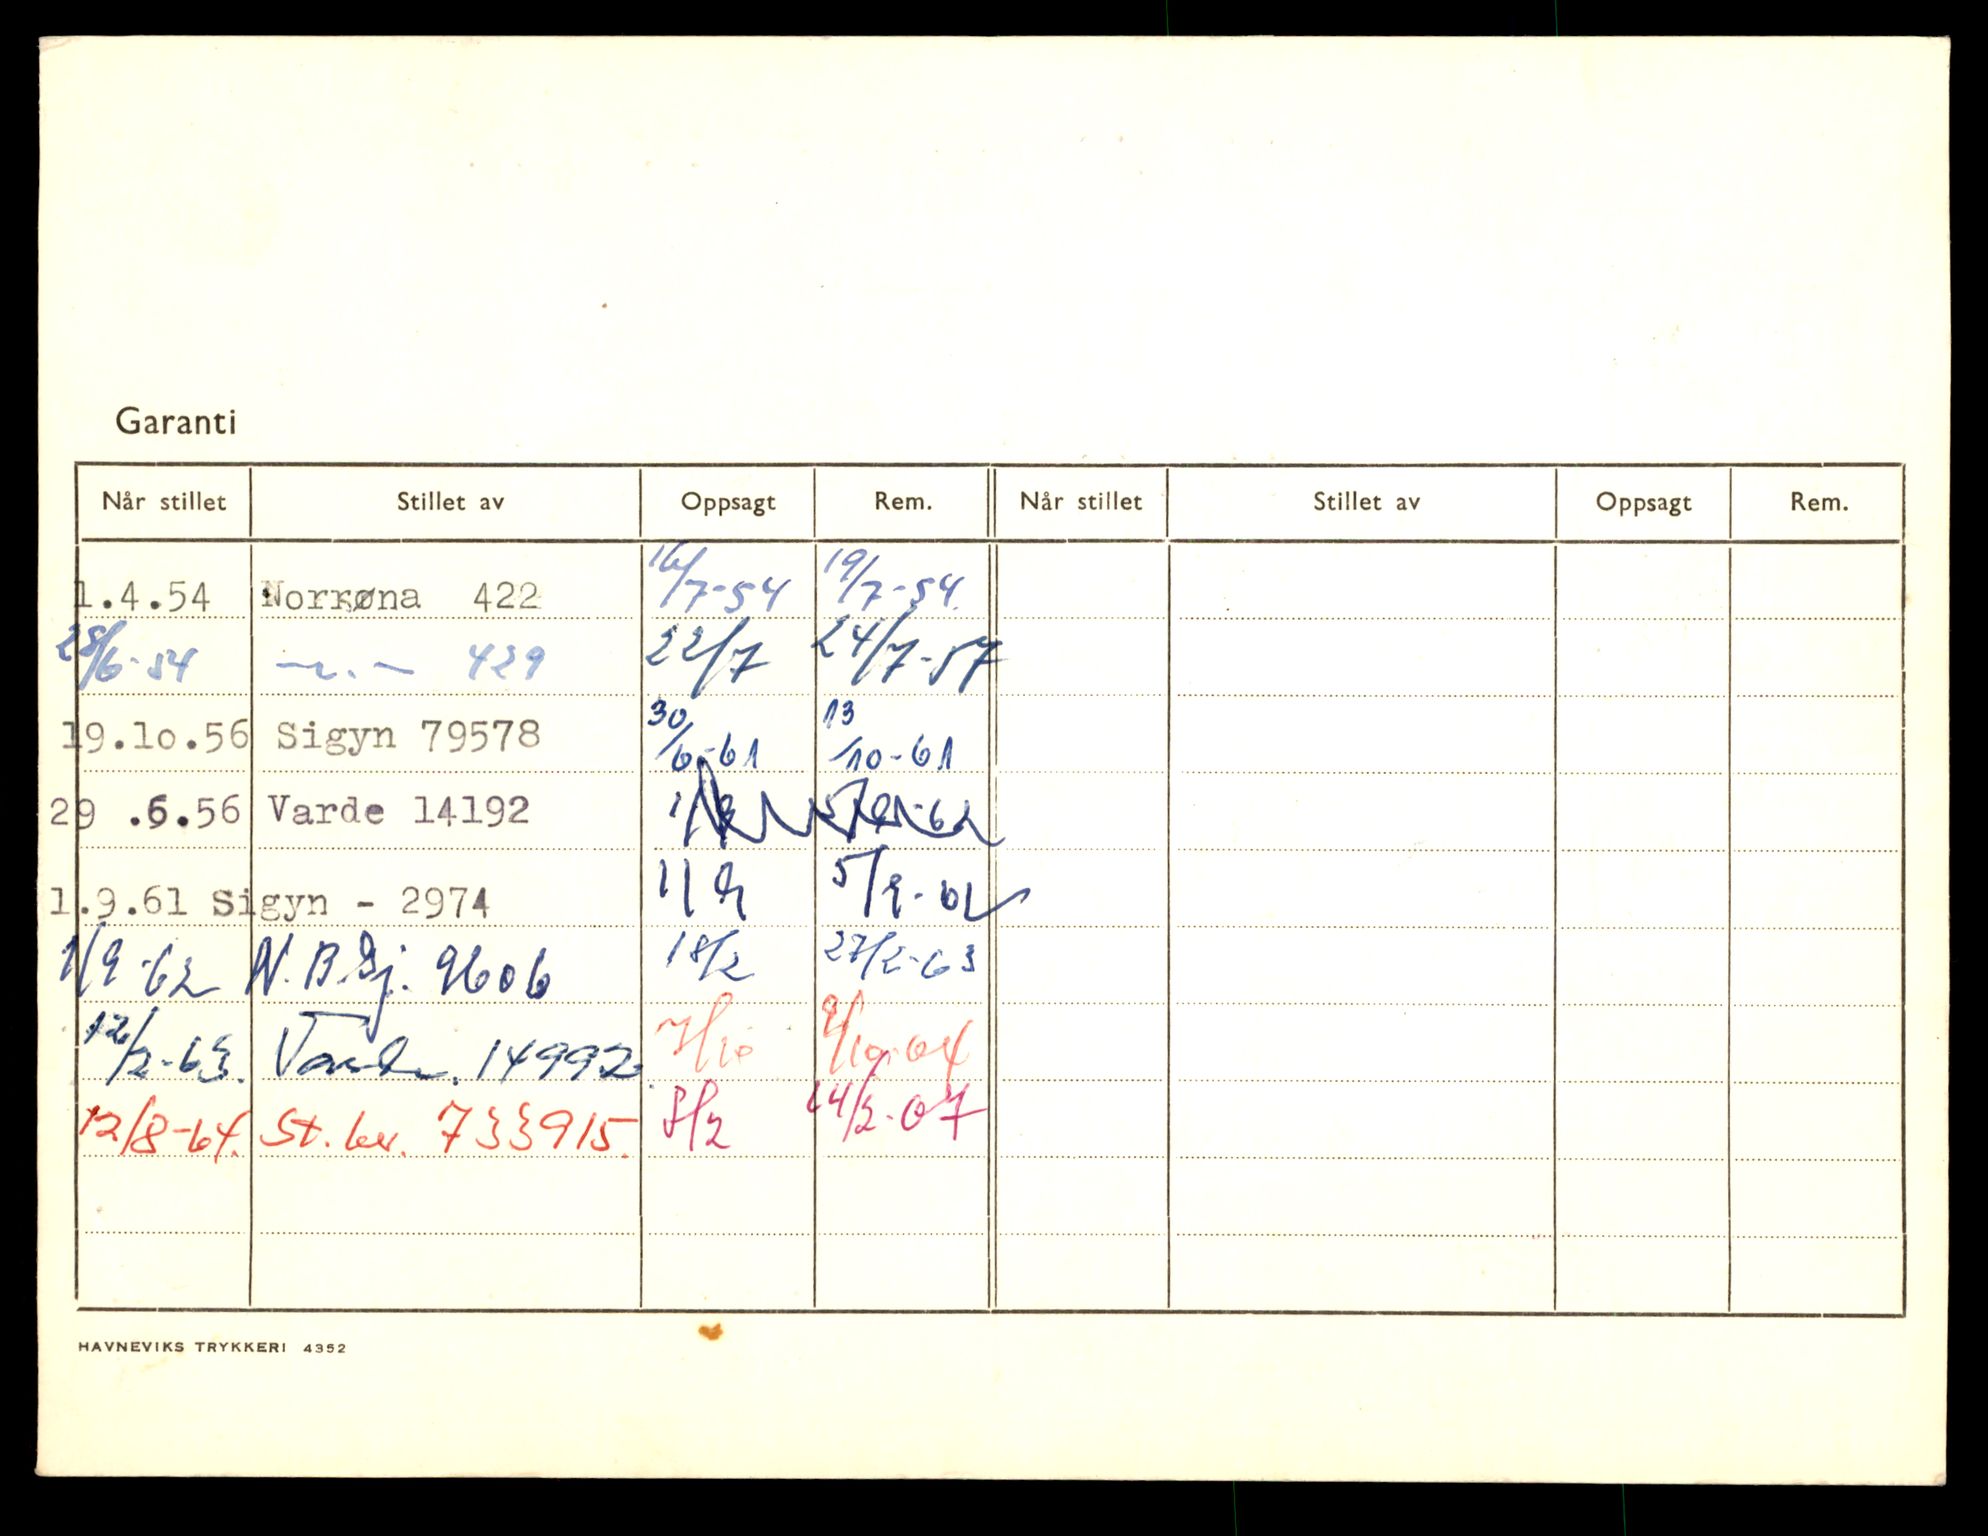 Garanti
Når stillet Stillet av Oppsagt Rem. Når stillet Stillet av Oppsagt Rem.
1.4.54 Norrøna 422 16/7-54 19/7-54.
28/6-54 —"— 429 22/7 24/7-57
19.10.56 Sigyn 79578 30/6-61 13/10-61
29 .6.56 Varde 14192
1.9.61 Sigyn - 2974 1/9 5/9-62
1/9-62 N.B.Gj. 9606 18/2 27/2-63
12/2-63. Varde. 14992 7/10 9/10-64
12/8-64. St.br. 733915. 8/2 14/2-67
HAVNEVIKS TRYKKERI 4352